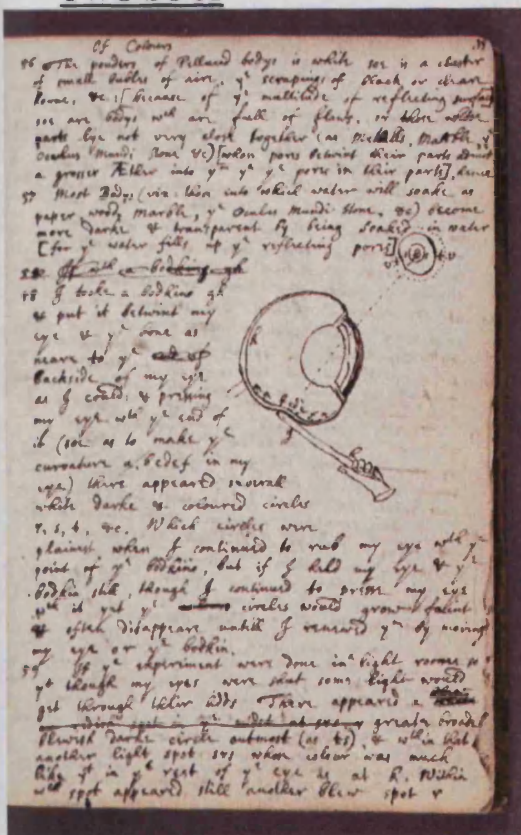 Of Colours
56 The pouders of Pellucid bodys is white soe is a cluster
of small bubles of aire, yᵉ scrapings of black or cleare
horne, &c: [because of yᵉ multitude of reflecting surfaces
soe are bodys wᶜʰ are full of flaws, or those whose
parts lye not very close together (as Metalls, Marble, yᵉ
Oculus Mundi Stone &c) [whose pores betwixt their parts admit
a grosser Æther into yᵐ yⁿ yᵉ pores in their parts], hence
57 Most Bodys (viz: those into which water will soake as
paper, wood, marble, yᵉ Oculus Mundi Stone, &c) become
more darke & transparent by being soaked in water
[for yᵉ water fills up yᵉ reflecting pores]
58 I tooke a bodkine gh
& put it betwixt my
eye & yᵉ bone as
neare to yᵉ
backside of my eye
as I could: & pressing
my eye wᵗʰ yᵉ end of
it (soe as to make yᵉ
curvature a, bcdef in my
eye) there appeared severall
white darke & coloured circles
r, s, t, &c. Which circles were
plainest when I continued to rub my eye wᵗʰ yᵉ
point of yᵉ bodkine, but if I held my eye & yᵉ
bodkin still, though I continued to presse my eye
wᵗʰ it yet yᵉ circles would grow faint
& often disappeare untill I renewed yᵐ by moving
my eye or yᵉ bodkin.
59 If yᵉ experiment were done in a light roome so
yᵗ though my eyes were shut some light would
get through their lidds There appeared a
greate broade
blewish darke circle outmost (as ts), & wᵗʰin that
another light spot srs whose colour was much
like yᵗ in yᵉ rest of yᵉ eye as at k. Within
wᶜʰ spot appeared still another blew spot r